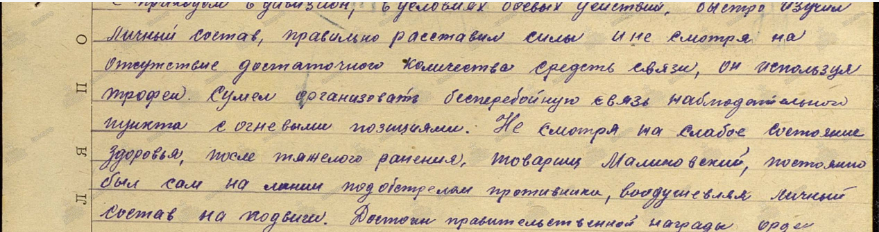 с приходом в дивизион, в условиях боевых действий, быстро изучил
личный состав, правильно расставил силы и не смотря на
отсутствие достаточного количества средств связи, он используя
трофеи. Сумел организовать бесперебойную связь наблюдательного
пункта с огневыми позициями. Не смотря на слабое состояние
здоровья, после тяжелого ранения, товарищ Малиновский, постоянно
был сам на линии под обстрелом противника, воодушевляя личный
состав на подвиги. Достоин правительственной награды орде
О
П
Я
Л